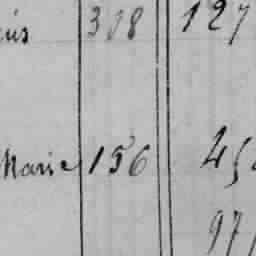 308 127
Marie 156 45
97